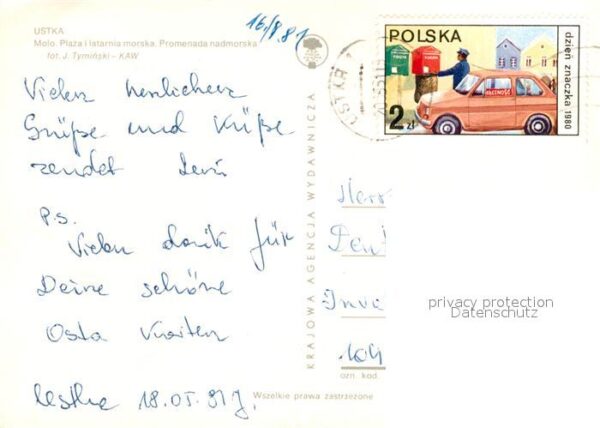 USTKA
Molo. Plaża i latarnia morska. Promenada nadmorska
fot. J. Tymiński – KAW
16/8.81
Vielen herzlichen
Grüße und Küße
zendet
P.S.
Vielen dank für
Deine schöne
Osta Karten
18.05.81
KRAJOWA AGENCJA WYDAWNICZA
Wszelkie prawa zastrzeżone
POLSKA
dzień znaczka 1980
2 zł
USTKA
Herr
ozn. kod.
privacy protection
Datenschutz